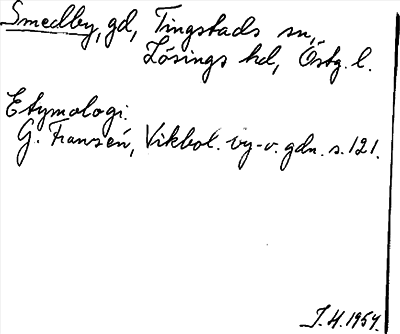 Smedby, gd, Tingstads sn,
Lösings hd, Östg. l.
Etymologi.
G. Fransén, Vikbol. by-o. gdn. s. 121.
J. H. 1954.